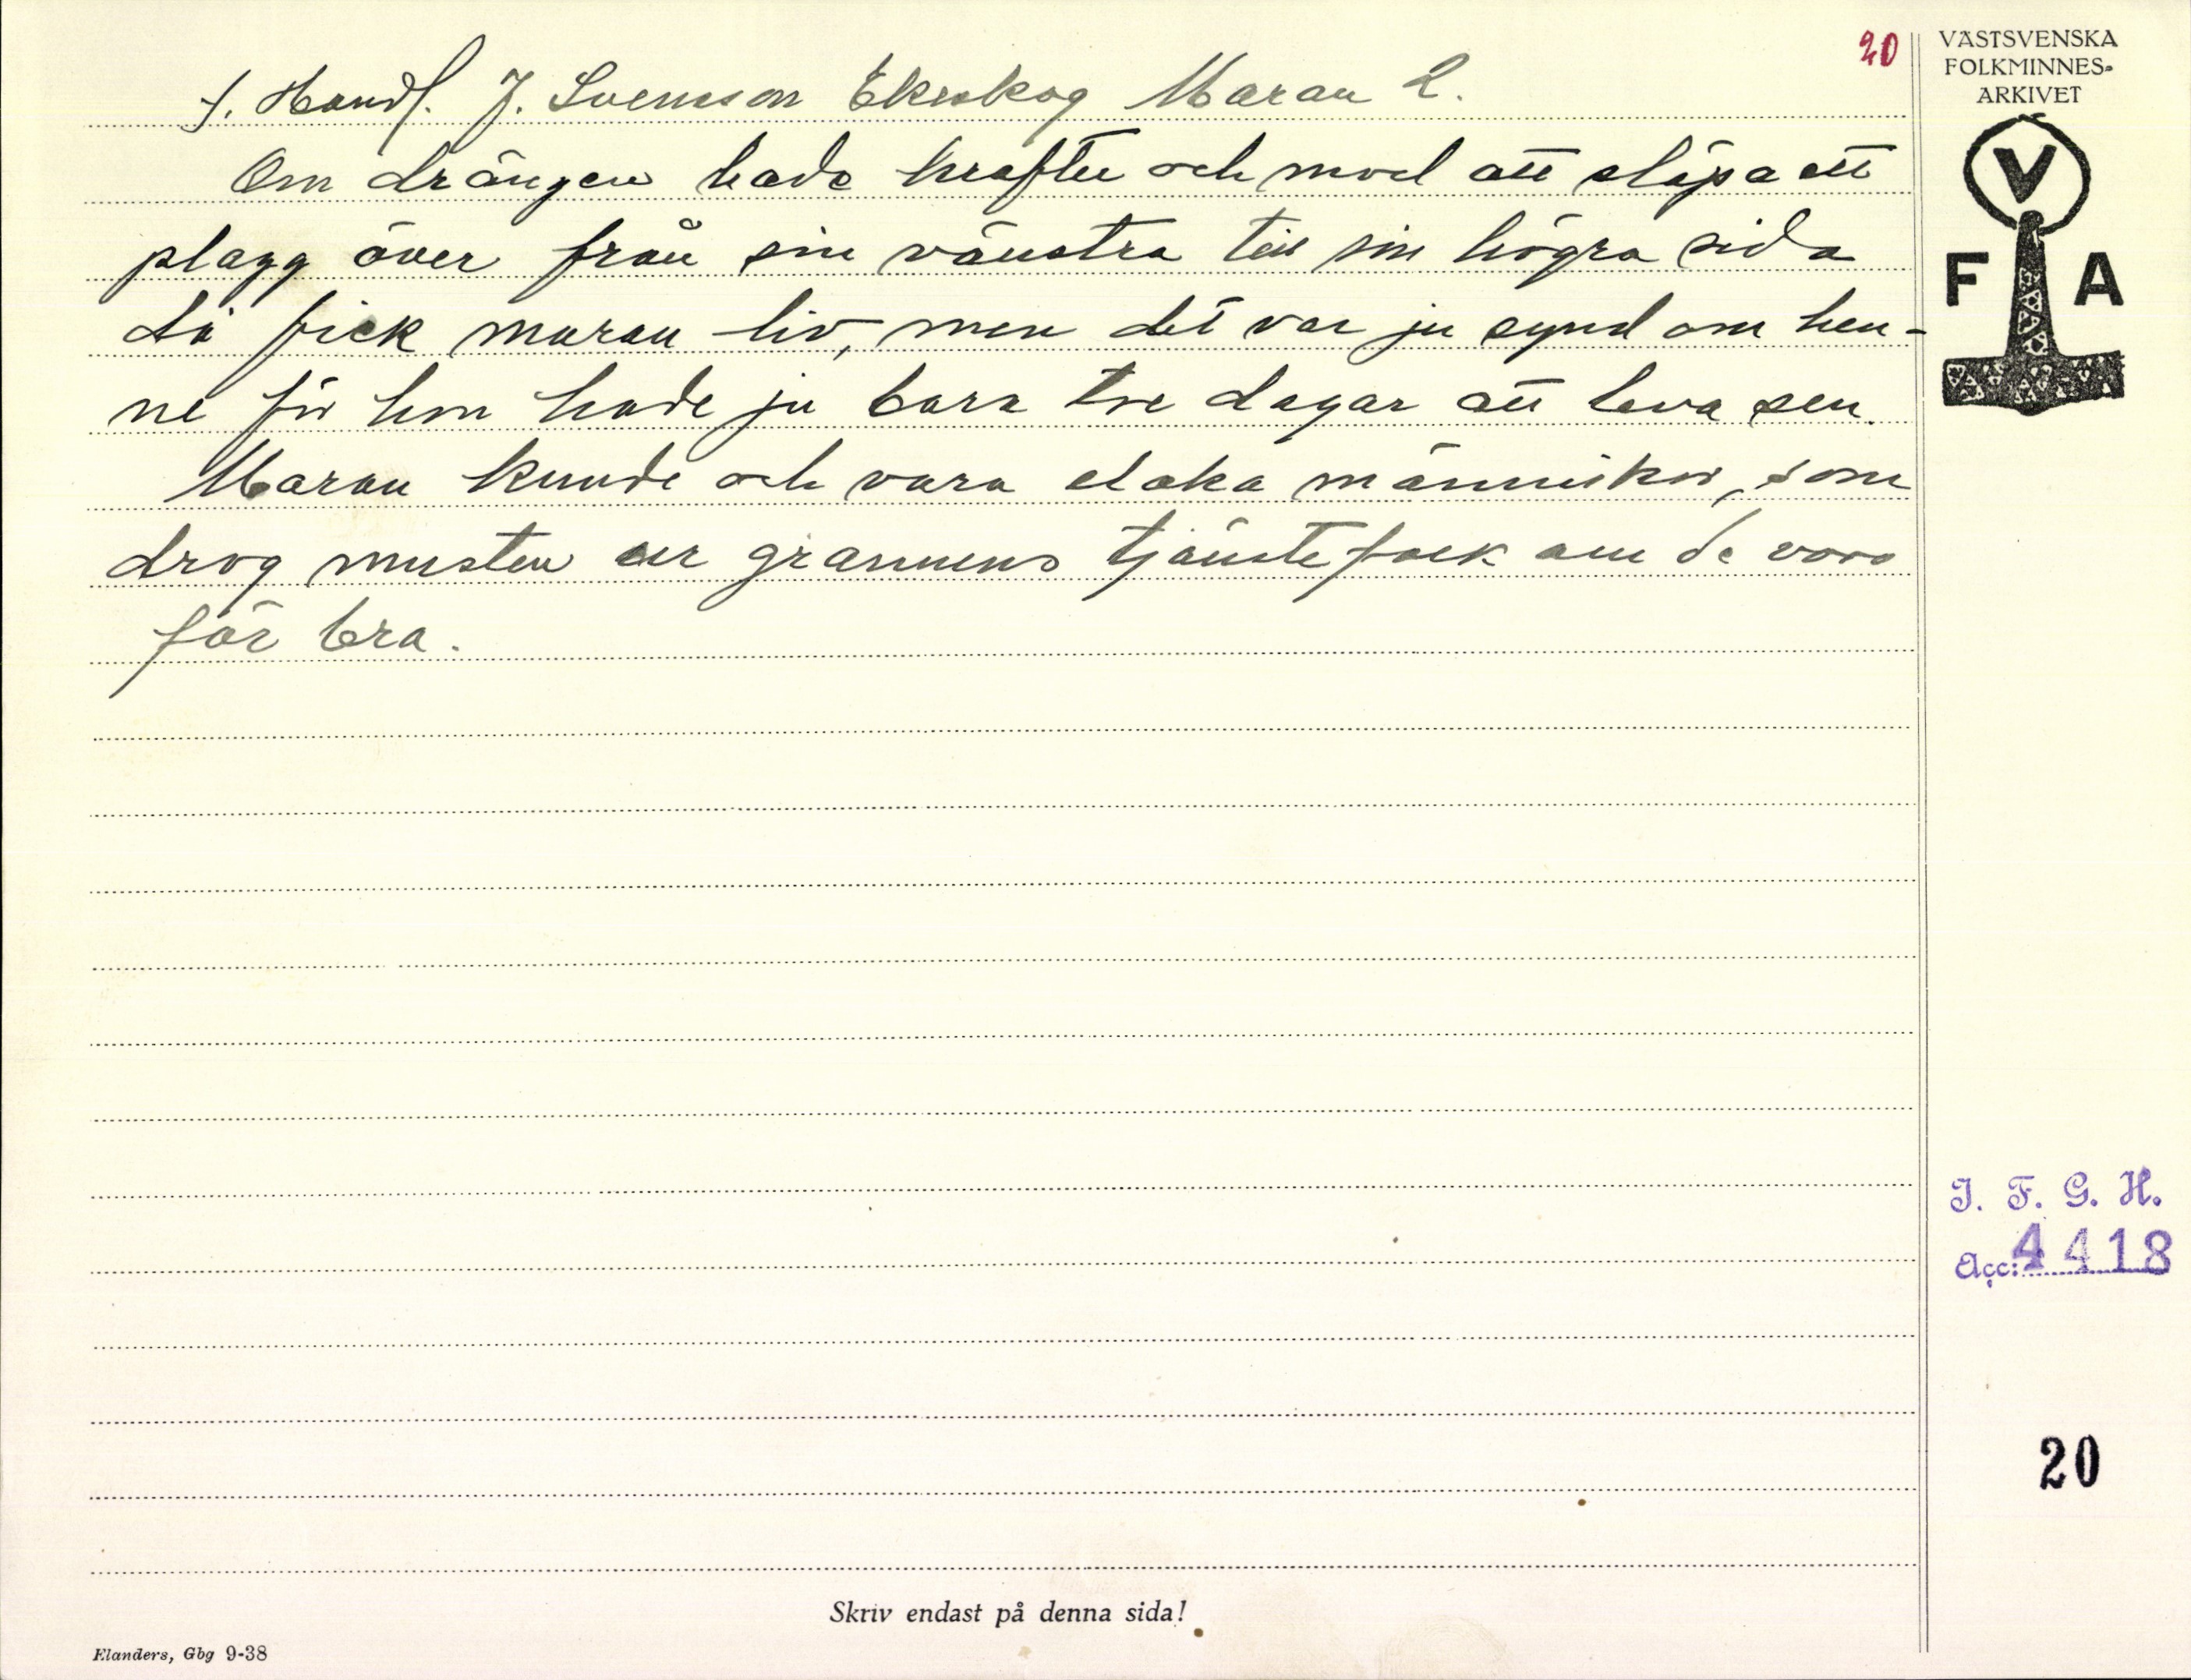 20
VÄSTSVENSKA
FOLKMINNES-
ARKIVET
V
F A
f. Handl. J. Svensson Ekeskog Maran 2.
Om drängen hade krafter och mod att släpa ett
plagg över från sin vänstra till sin högra sida
då fick maran liv, men det var ju synd om hen-
ne för hon hade ju bara tre dagar att leva sen.
Maran kunde och vara elaka människor, som
drog musten ur grannens tjänstefolk om de voro
för bra.
I. F. G. H.
Acc: 4418
20
Skriv endast på denna sida!
Elanders, Gbg 9-38